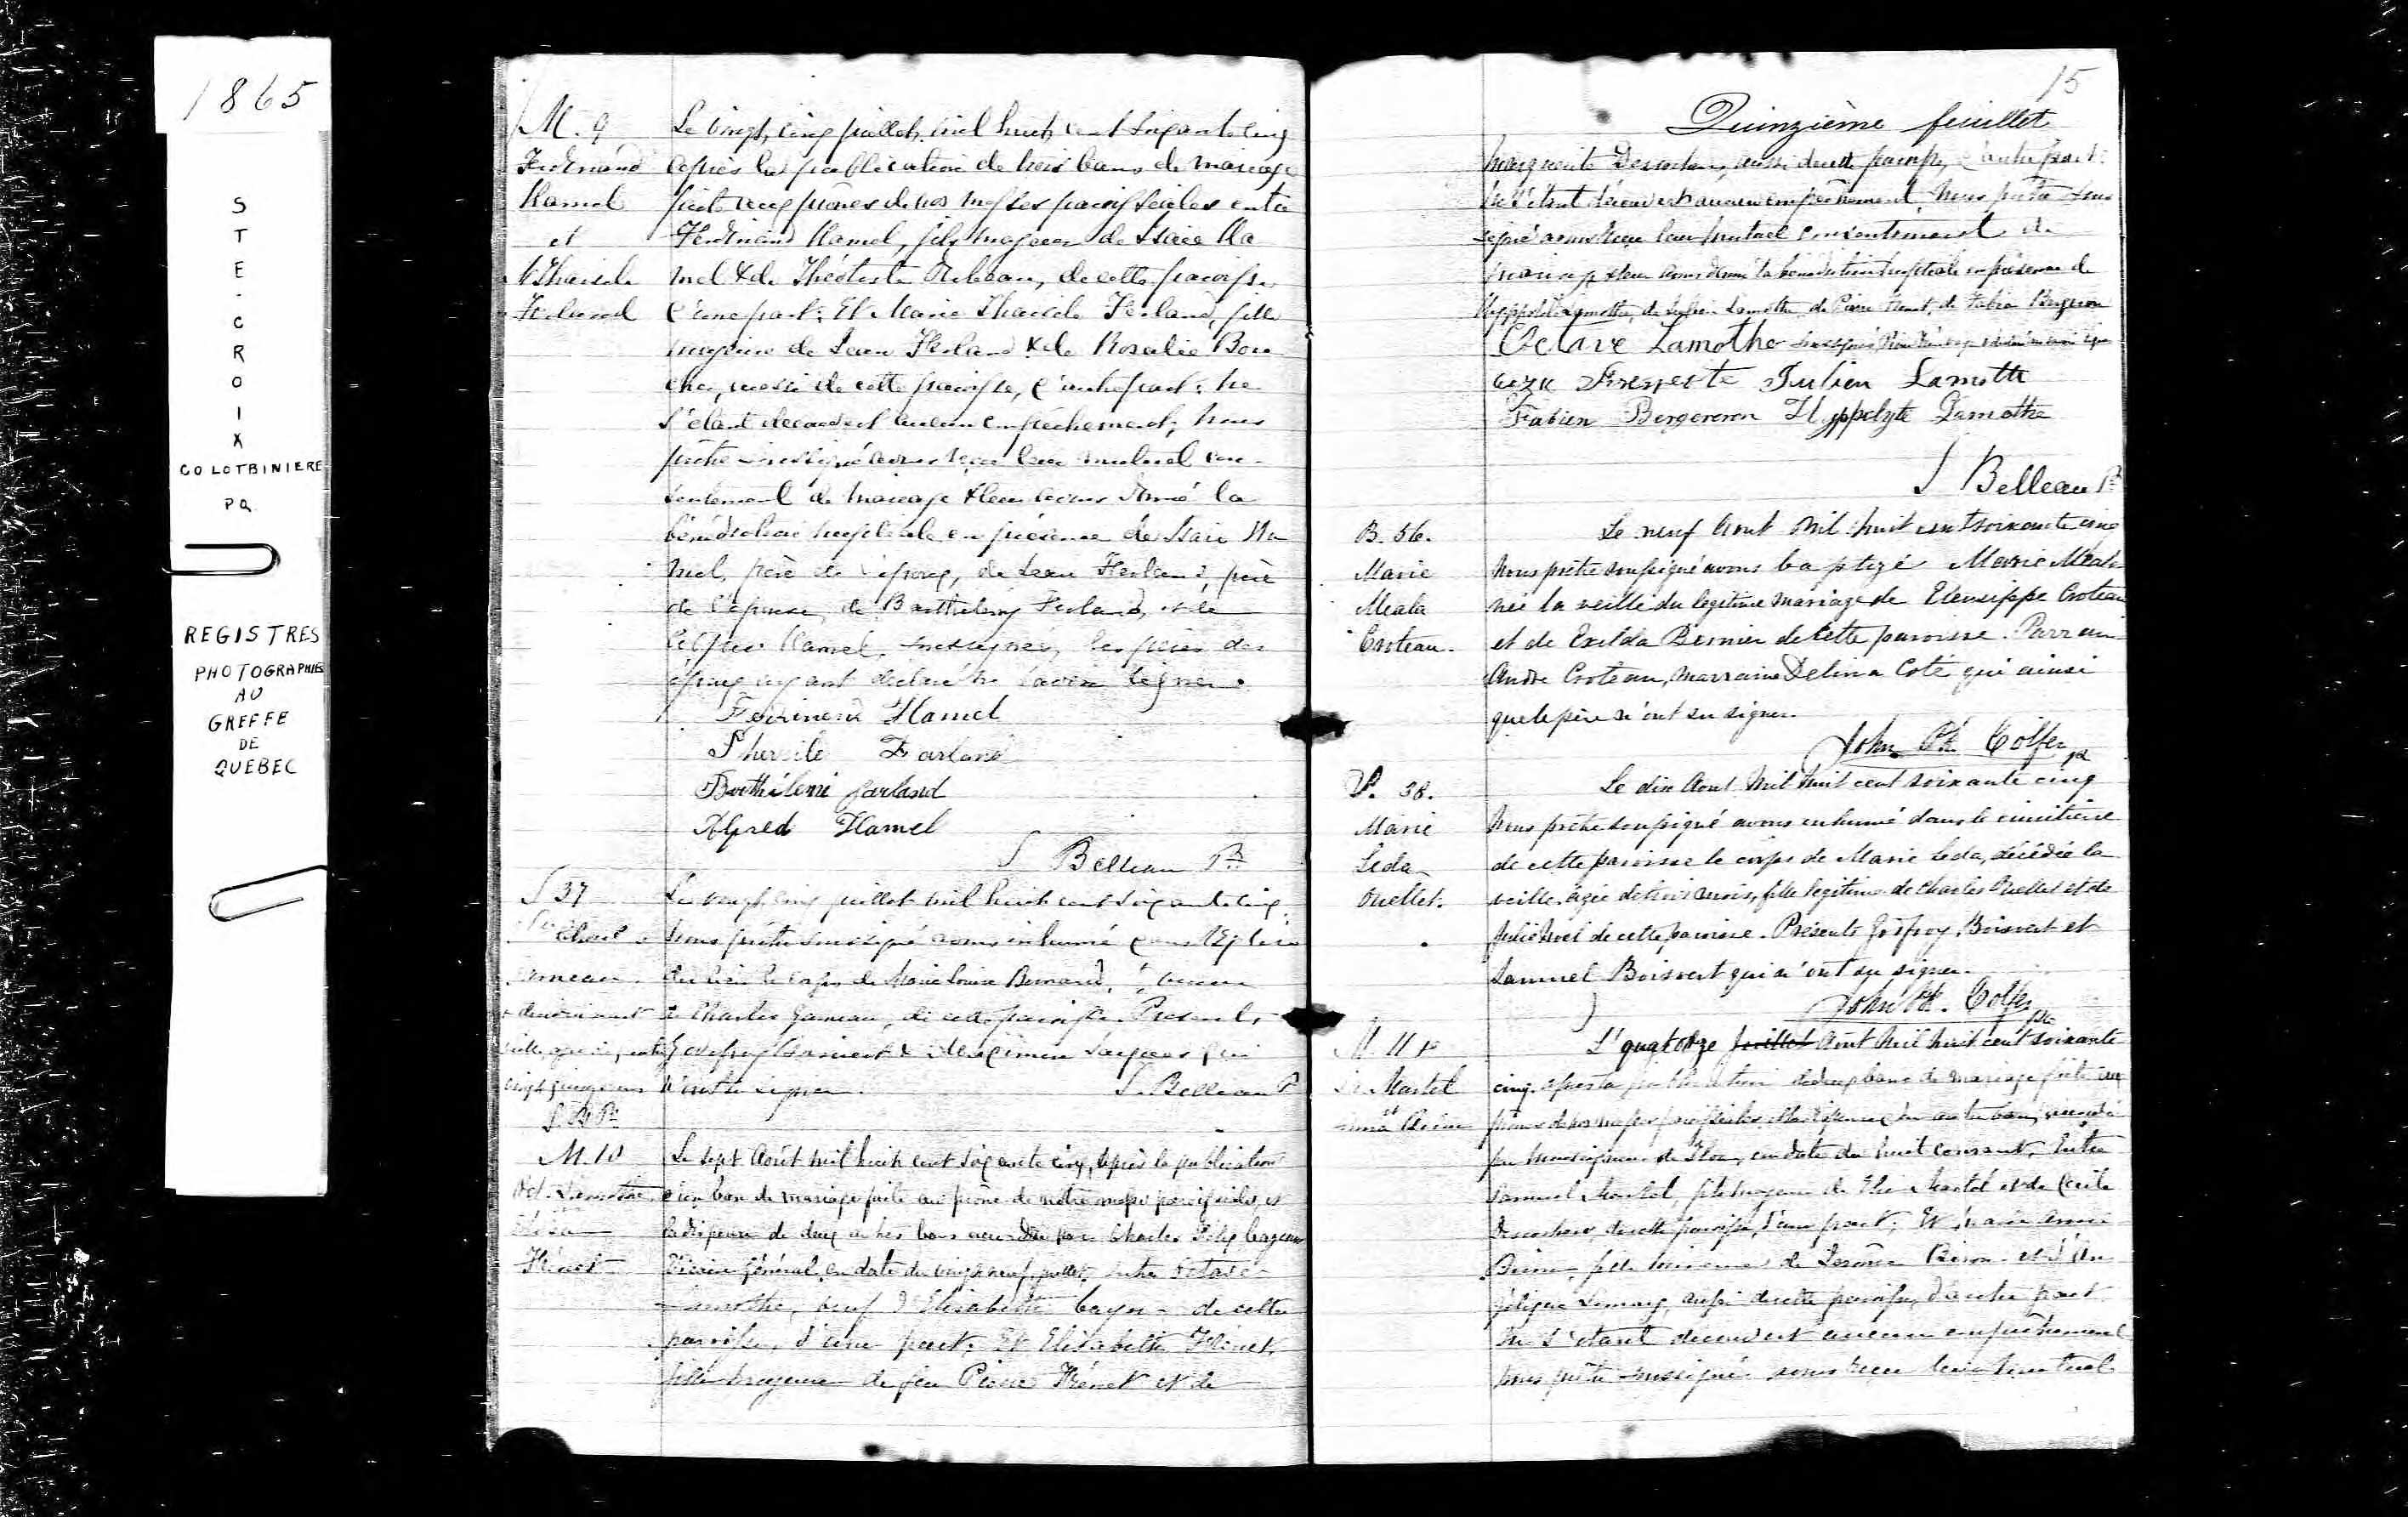 1865
STE-CROIX
CO LOTBINIERE
PQ
REGISTRES
PHOTOGRAPHIES
AU
GREFFE
DE
QUEBEC
M. 9
Ferdinand
Hamel
et
M. Tharsile
Ferland
Le vingt cinq juillet mil huit cent soixante cinq
après la publication de trois bans de mariage
faite aux prônes de nos messes paroissiales entre
Ferdinand Hamel, fils majeur de Isaie Ha
mel & de Théotiste, de cette paroisse
d'une part; Et Marie Tharsile Ferland, fille
majeure de Jean Ferland & de Rosalie Bou
cher, aussi de cette paroisse, d'autre part: ne
s'étant découvert aucun empêchement, Nous
prêtre soussigné avons reçu leur mutuel con-
sentement de mariage & leur avons donné la
bénédiction nuptiale en présence de Isaie Ha
mel, père de l'époux, de Jean Ferland, père
de l'épouse, de Barthélemy Ferland, et de
Hamel, soussignés, les pères des
époux ayant déclaré ne savoir signer.
Ferdinend Hamel
Tharsile Farland
Barthélemi farland
Alfred Hamel
J Belleau Ptre
S 37
Le vingt cinq juillet mil huit cent soixante cinq
Nous prêtre soussigné avons inhumé dans l'Eglise
du lieu le corps de Marie Louise Bernard,
de Charles Garneau, de cette paroisse. Présents,
Godefroy Boisvert & qui
n'ont su signer. J. Belleau P
M. 10
Oct. Lamothe
Hénet
Le sept Août mil huit cent soixante cinq, après la publication
d'un ban de mariage faite au prône de notre messe paroissiale, et
la dispense de deux autres bans accordée par Charles Félix Cazeau
Vicaire Général, en date du vingt neuf juillet, entre Octave
Lamothe, veuf d'Elisabeth de cette
paroisse, d'une part; Et Elisabeth Hénet,
fille majeure de feu Pierre Hénet et de
15
Quinzième feuillet
Marguerite Desrochers, aussi de cette paroisse, d'autre part:
ne s'étant découvert aucun empêchement, Nous prêtre sous
signé avons reçu leur mutuel consentement de
mariage & leur avons donné la bénédiction nuptiale en présence de
Hyppolite Lamothe, de Julien Lamothe, de Pierre Hénet, de Fabien Bergeron
Octave Lamothe
Julien Lamothe
Fabien Bergereron Hyppolyte Lamothe
J Belleau Ptre
B. 56.
Marie
Meala
Croteau.
Le neuf Aout Mil huit cent soixante cinq
Nous prêtre soussigné avons baptizé Marie Meala
née la veille du légitime mariage de Eleusippe Croteau
et de Exilda Bernier de cette paroisse. Parrain
André Croteau, marraine Delina Coté qui ainsi
que le père n'ont su signer.
John Pk. Colfer Ptre
S. 38.
Marie
Leda
Ouellet.
Le dix Aout Mil huit cent soixante cinq
Nous prêtre soussigné avons inhumé dans le cimitière
de cette paroisse le corps de Marie Leda, décédée la
veille, agée de trois mois, fille légitime de Charles Ouellet et de
Julie Noel de cette paroisse. Présents Josfroy Boisvert et
Samuel Boisvert qui n'ont su signer.
John Pk. Colfer Ptre
M. 11
Martel
et
Biron
L' quatorze juillet Août Mil huit cent soixante
cinq, après la publication de deux bans de mariage faite aux
prônes de nos messes paroissiales, et la dispense du autre ban, accordé
par Monseigneur de Tloa, en date du huit courant, Entre
Samuel Martel, fils majeur de Martel et de Cécile
Desrochers, de cette paroisse, d'une part; Et Marie
Biron, fille mineure de Jérôme Biron et d'An
gélique Lemay, aussi de cette paroisse, d'autre part
Ne s'étant découvert aucun empêchement
Nous prêtre soussigné avons reçu leur mutuel